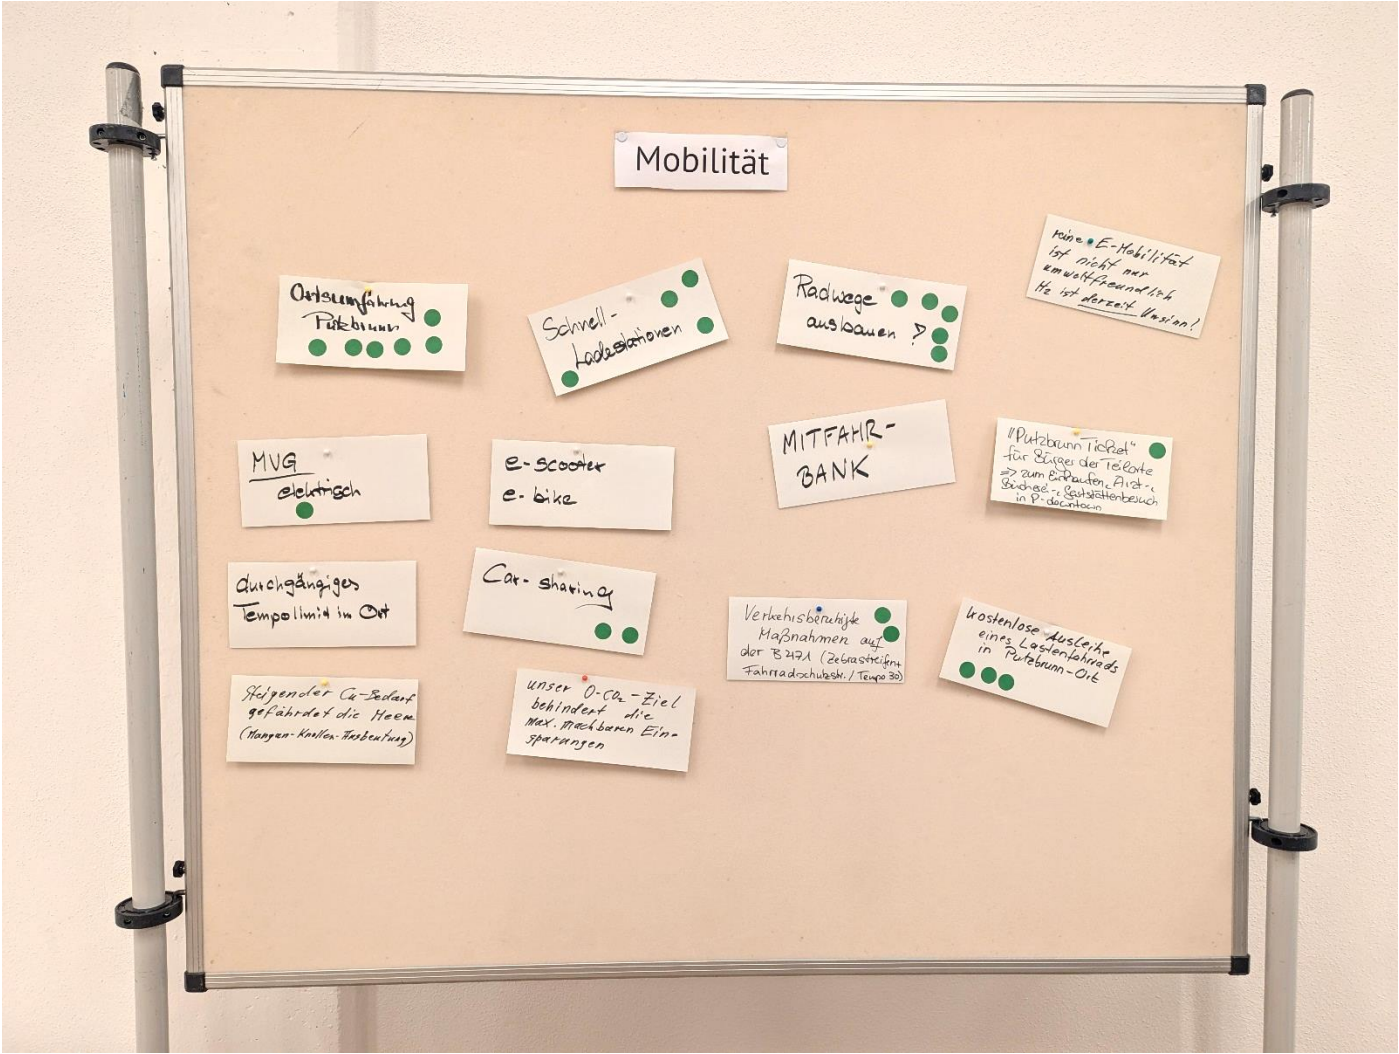 Mobilität
Ortsumfahrung
Putzbrunn
Schnell-
Ladestationen
Radwege
ausbauen ?
reine E-Mobilität
ist nicht nur
umweltfreundlich
H2 ist derzeit Unsinn!
MVG
elektrisch
e-scooter
e-bike
MITFAHR-
BANK
"Putzbrunn Ticket"
für Bürger der Teilorte
=> zum Einkaufen-, Arzt-,
Bücherei-, Gaststättenbesuch
in P-downtown
durchgängiges
Tempolimid in Ort
Car-sharing
Verkehrsberuhigte
Maßnahmen auf
der B471 (Zebrastreifen+
Fahrradschutzstr. / Tempo 30)
kostenlose Ausleihe
eines Lastenfahrrads
in Putzbrunn-Ort
Steigender Cu-Bedarf
gefährdet die Meere
(Mangan-Knollen-Ausbeutung)
unser 0-CO₂-Ziel
behindert die
max. machbaren Ein-
sparungen